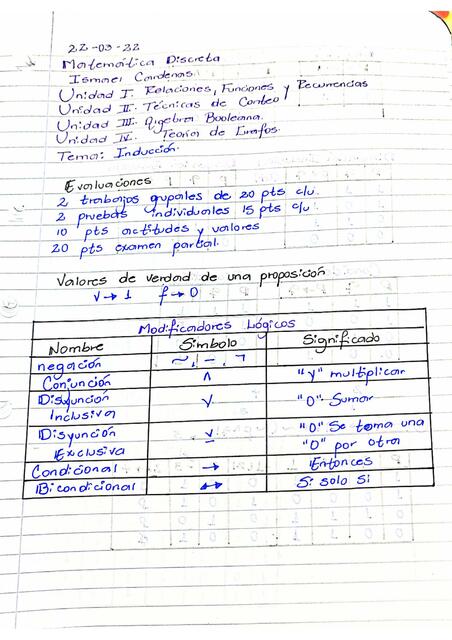 22-03-22
Matemática Discreta
Ismael Cardenas.
Unidad I. Relaciones, Funciones y Recurrencias
Unidad II. Técnicas de Conteo
Unidad III. Algebra Booleana.
Unidad IV. Teoria de Grafos.
Tema: Inducción.
Evaluaciones
2 trabajos grupales de 20 pts c/u.
2 pruebas individuales 15 pts c/u.
10 pts actitudes y valores
20 pts examen parcial.
Valores de verdad de una proposición
v → 1 f → 0
Modificadores Lógicos
Nombre Simbolo Significado
negación ~, -, ¬
Conjunción ∧ "y" multiplicar
Disyunción Inclusiva ∨ "O" Sumar
Disyunción Exclusiva ⊻ "O" Se toma una "O" por otra
Condicional → Entonces
Bicondicional ↔ Si solo si